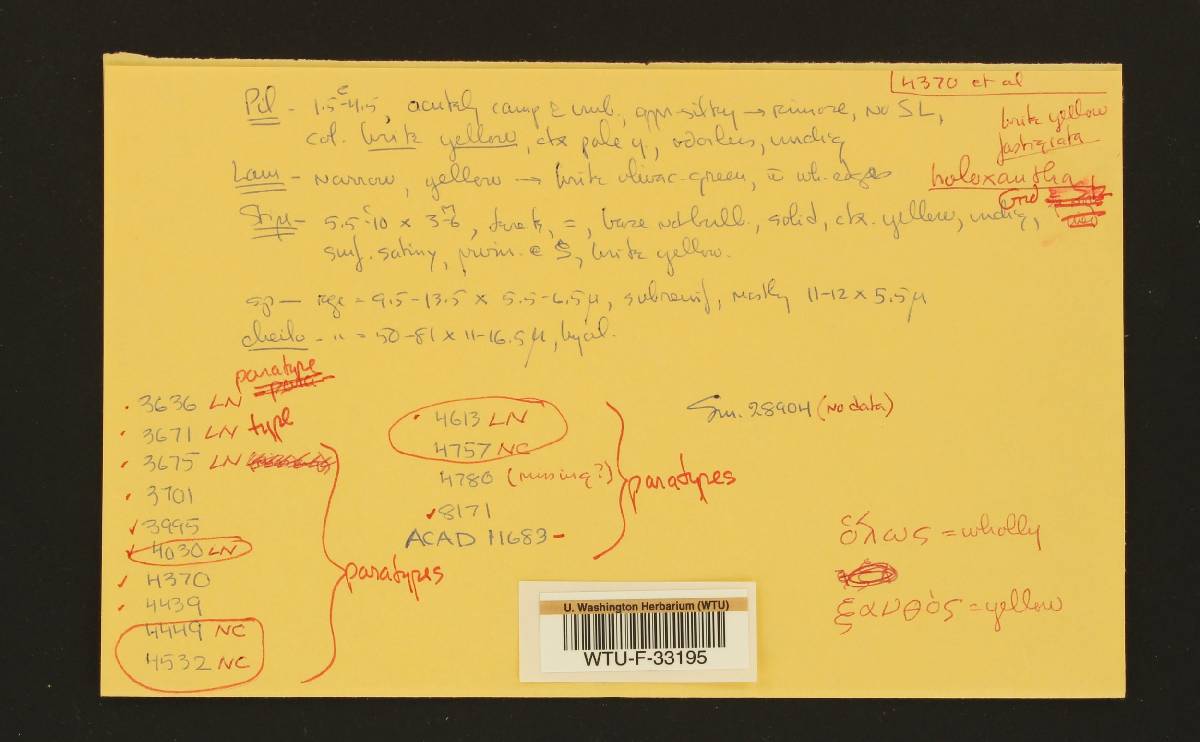 4370 et al
Pil - 1.5-4.5, acutely camp & umb., appr. silky → rimose, No SL,
brite yellow
col. brite yellow, ctx pale y, odorless,
fastigiata
Lam - narrow, yellow → brite olivac-green, wh. edges
holoxantha
Stipe - 5.5-10 × 3-6, =, base not bulb., solid, ctx. yellow,
surf. satiny, pruin. brite yellow.
sp - rge = 9.5-13.5 × 5.5-6.5µ, subrenif, mostly 11-12 × 5.5µ
cheilo - " = 50-81 × 11-16.5µ, hyal.
paratype
3636 LN
3671 LN type
3675 LN
3701
3995
4030 LN
4370
4439
4449 NC
4532 NC
paratypes
4613 LN
4757 NC
4780 (missing?)
8171
ACAD 11683
paratypes
Sm. 28904 (no data)
ὅλως = wholly
ξανθὸς = yellow
U. Washington Herbarium (WTU)
WTU-F-33195